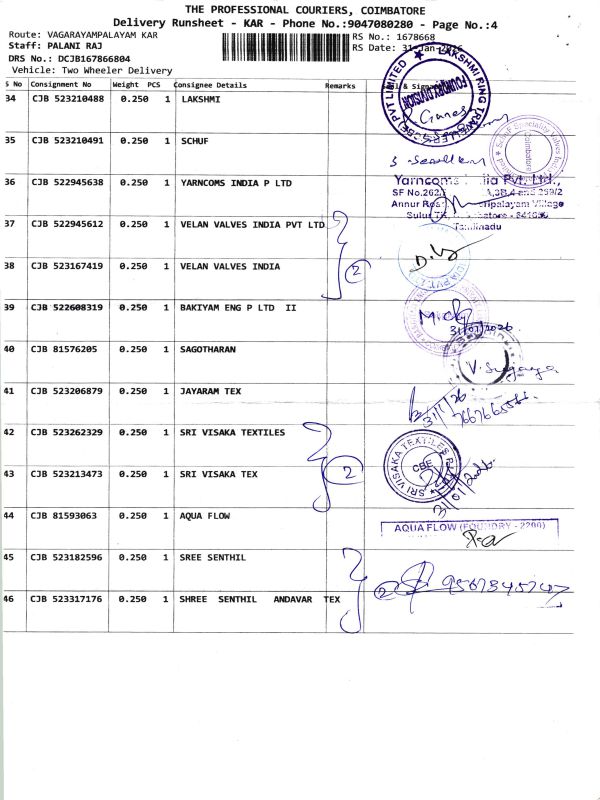 THE PROFESSIONAL COURIERS, COIMBATORE
Delivery Runsheet - KAR - Phone No.:9047080280 - Page No.:4
Route: VAGARAYAMPALAYAM KAR
RS No.: 1678668
Staff: PALANI RAJ
RS Date: 31-Jan-2026
DRS No.: DCJB167866804
Vehicle: Two Wheeler Delivery
S No Consignment No Weight PCS Consignee Details Remarks
34 CJB 523210488 0.250 1 LAKSHMI
LAKSHMI RING TRAVELLERS (CBE) PVT LIMITED
FOUNDRY DIVISION
35 CJB 523210491 0.250 1 SCHUF
Coimbatore
36 CJB 522945638 0.250 1 YARNCOMS INDIA P LTD
Yarncoms India Pvt. Ltd.,
Tamilnadu
37 CJB 522945612 0.250 1 VELAN VALVES INDIA PVT LTD
2
38 CJB 523167419 0.250 1 VELAN VALVES INDIA
39 CJB 522608319 0.250 1 BAKIYAM ENG P LTD II
31/01/2026
40 CJB 81576205 0.250 1 SAGOTHARAN
41 CJB 523206879 0.250 1 JAYARAM TEX
31/1/26
42 CJB 523262329 0.250 1 SRI VISAKA TEXTILES
2
SRI VISAKA TEXTILES
CBE
43 CJB 523213473 0.250 1 SRI VISAKA TEX
31/01/2026
44 CJB 81593063 0.250 1 AQUA FLOW
AQUA FLOW (FOUNDRY - 2200)
45 CJB 523182596 0.250 1 SREE SENTHIL
2
46 CJB 523317176 0.250 1 SHREE SENTHIL ANDAVAR TEX